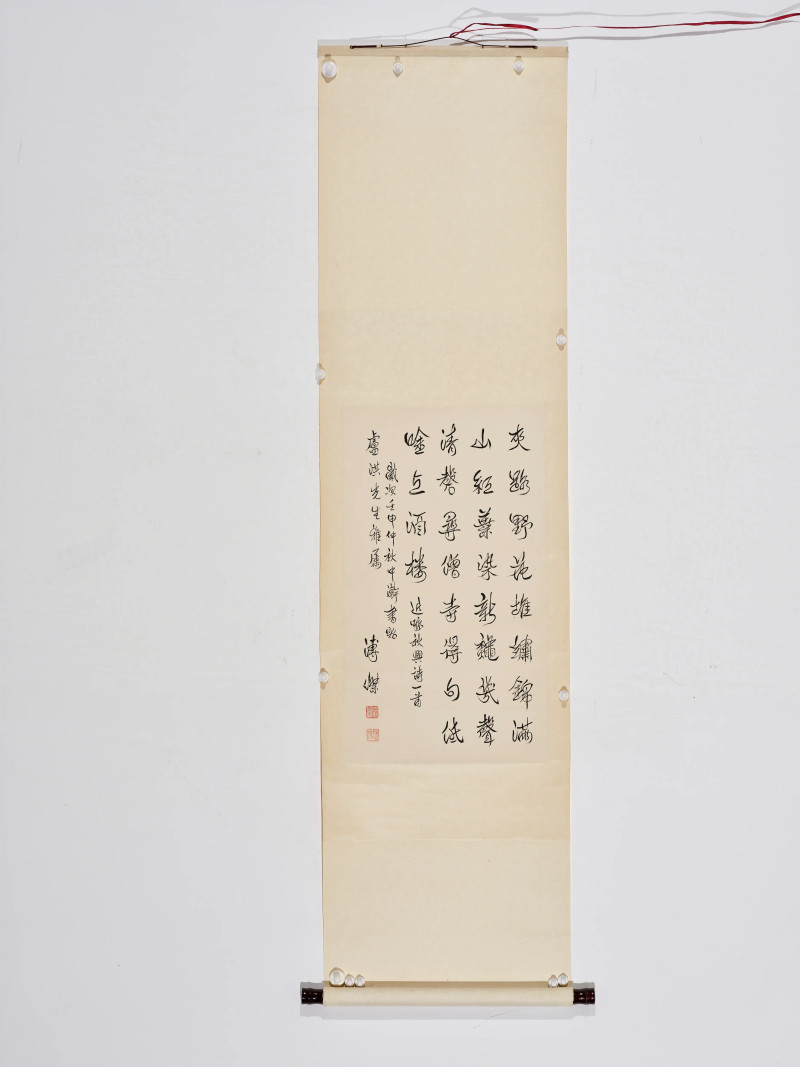 夾路野花堆繡錦滿
山紅葉染新龝幾聲
清磬尋僧寺得句低
唫上酒樓 近咏秋興詩一首
歲次壬申仲秋中澣書貽
盧洪先生雅屬
溥傑